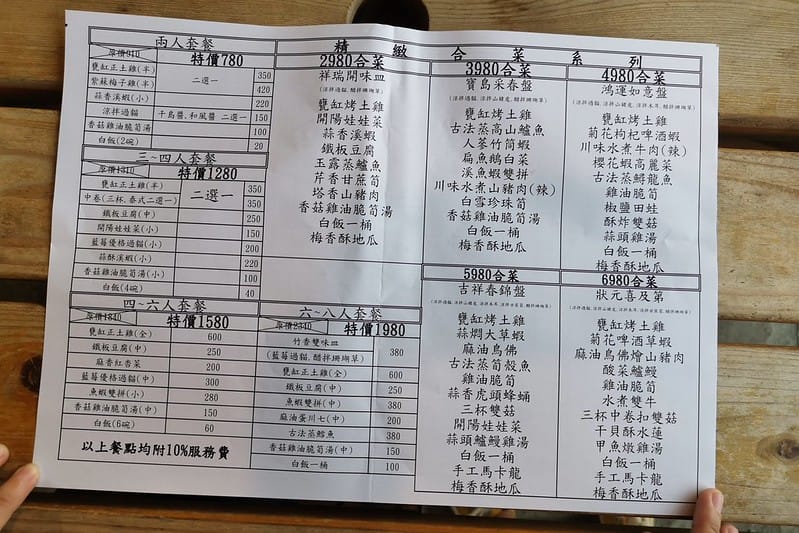 兩人套餐
原價910
特價780
甕缸正土雞(半)
二選一
350
紫蘇梅子雞(半)
420
蒜香溪蝦(小)
220
涼拌過貓
千島醬、和風醬 二選一
150
香菇雞油脆筍湯
100
白飯(2碗)
20
三~四人套餐
原價1310
特價1280
甕缸正土雞(半)
二選一
350
中卷(三杯、泰式二選一)
350
鐵板豆腐(中)
250
開陽娃娃菜(小)
150
藍莓優格過貓(小)
200
蒜酥溪蝦(小)
220
香菇雞油脆筍湯(小)
100
白飯(4碗)
40
四~六人套餐
原價1840
特價1580
甕缸正土雞(全)
600
鐵板豆腐(中)
250
麻香紅杏菜
200
藍莓優格(中)
300
魚蝦雙拼(小)
280
香菇雞油脆筍湯(中)
150
白飯(6碗)
60
以上餐點均附10%服務費
六~八人套餐
原價2340
特價1980
竹香雙味皿
(藍莓過貓,醋拌珊瑚草)
380
甕缸正土雞(全)
600
鐵板豆腐(中)
250
魚蝦雙拼(中)
380
麻油蛋川七(中)
200
古法蒸鱈魚
380
香菇雞油脆筍湯(中)
150
白飯一桶
100
精緻合菜系列
2980合菜
祥瑞開味皿
(涼拌過貓,醋拌珊瑚草)
甕缸烤土雞
開陽娃娃菜
蒜香溪蝦
鐵板豆腐
玉露蒸鱸魚
芹香甘蔗筍
塔香山豬肉
香菇雞油脆筍湯
白飯一桶
梅香酥地瓜
3980合菜
寶島采春盤
甕缸烤土雞
古法蒸高山鱸魚
人蔘竹筒蝦
扁魚鵝白菜
溪魚蝦雙拼
川味水煮山豬肉(辣)
白雪珍珠筍
香菇雞油脆筍湯
白飯一桶
梅香酥地瓜
4980合菜
鴻運如意盤
甕缸烤土雞
菊花枸杞啤酒蝦
川味水煮牛肉(辣)
櫻花蝦高麗菜
古法蒸鱘龍魚
雞油脆筍
椒鹽田蛙
酥炸雙菇
蒜頭雞湯
白飯一桶
梅香酥地瓜
5980合菜
吉祥春錦盤
甕缸烤土雞
蒜燜大草蝦
麻油烏佛
古法蒸筍殼魚
雞油脆筍
蒜香虎頭蜂蛹
三杯雙菇
開陽娃娃菜
蒜頭鱸鰻雞湯
白飯一桶
手工馬卡龍
梅香酥地瓜
6980合菜
狀元喜及第
甕缸烤土雞
菊花啤酒草蝦
麻油烏佛燴山豬肉
酸菜鱸鰻
雞油脆筍
水煮雙牛
三杯中卷扣雙菇
干貝酥水蓮
甲魚燉雞湯
白飯一桶
手工馬卡龍
梅香酥地瓜